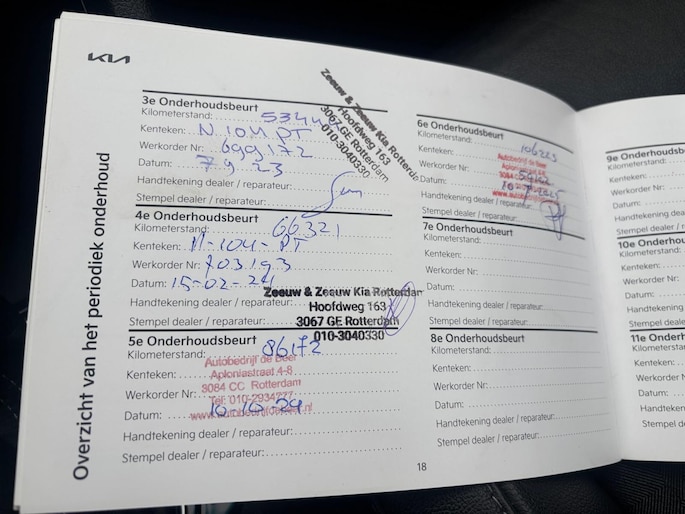 KIA
Overzicht van het periodiek onderhoud
3e Onderhoudsbeurt
Kilometerstand:
Kenteken: N 104 PT
Werkorder Nr: 699172
Datum: 7 9 23
Handtekening dealer / reparateur:
Stempel dealer / reparateur:
Zeeuw & Zeeuw Kia Rotterdam
Hoofdweg 163
3067 GE Rotterdam
010-3040330
4e Onderhoudsbeurt
Kilometerstand: 66321
Kenteken: N-104-PT
Werkorder Nr: 703193
Datum: 15-02-24
Handtekening dealer / reparateur:
Stempel dealer / reparateur:
Zeeuw & Zeeuw Kia Rotterdam
Hoofdweg 163
3067 GE Rotterdam
010-3040330
5e Onderhoudsbeurt
Kilometerstand: 86172
Kenteken:
Werkorder Nr:
Datum: 10 10 24
Handtekening dealer / reparateur:
Stempel dealer / reparateur:
Autobedrijf de Beer
Aploniastraat 4-8
3084 CC Rotterdam
Tel: 010-2934277
6e Onderhoudsbeurt
Kilometerstand: 106225
Kenteken:
Werkorder Nr:
Datum:
Handtekening dealer / reparateur:
Stempel dealer / reparateur:
Autobedrijf de Beer
7e Onderhoudsbeurt
Kilometerstand:
Kenteken:
Werkorder Nr:
Datum:
Handtekening dealer / reparateur:
Stempel dealer / reparateur:
8e Onderhoudsbeurt
Kilometerstand:
Kenteken:
Werkorder Nr:
Datum:
Handtekening dealer / reparateur:
Stempel dealer / reparateur:
18
9e Onderhoudsb
Kilometerstand:
Kenteken:
Werkorder Nr:
Datum:
Handtekening dealer
Stempel dealer / re
10e Onderhou
Kilometerstand:
Kenteken:
Werkorder Nr:
Datum:
Handtekening d
Stempel dealer
11e Onderh
Kilometerstand
Kenteken:
Werkorder Nr:
Datum:
Handtekening
Stempel d